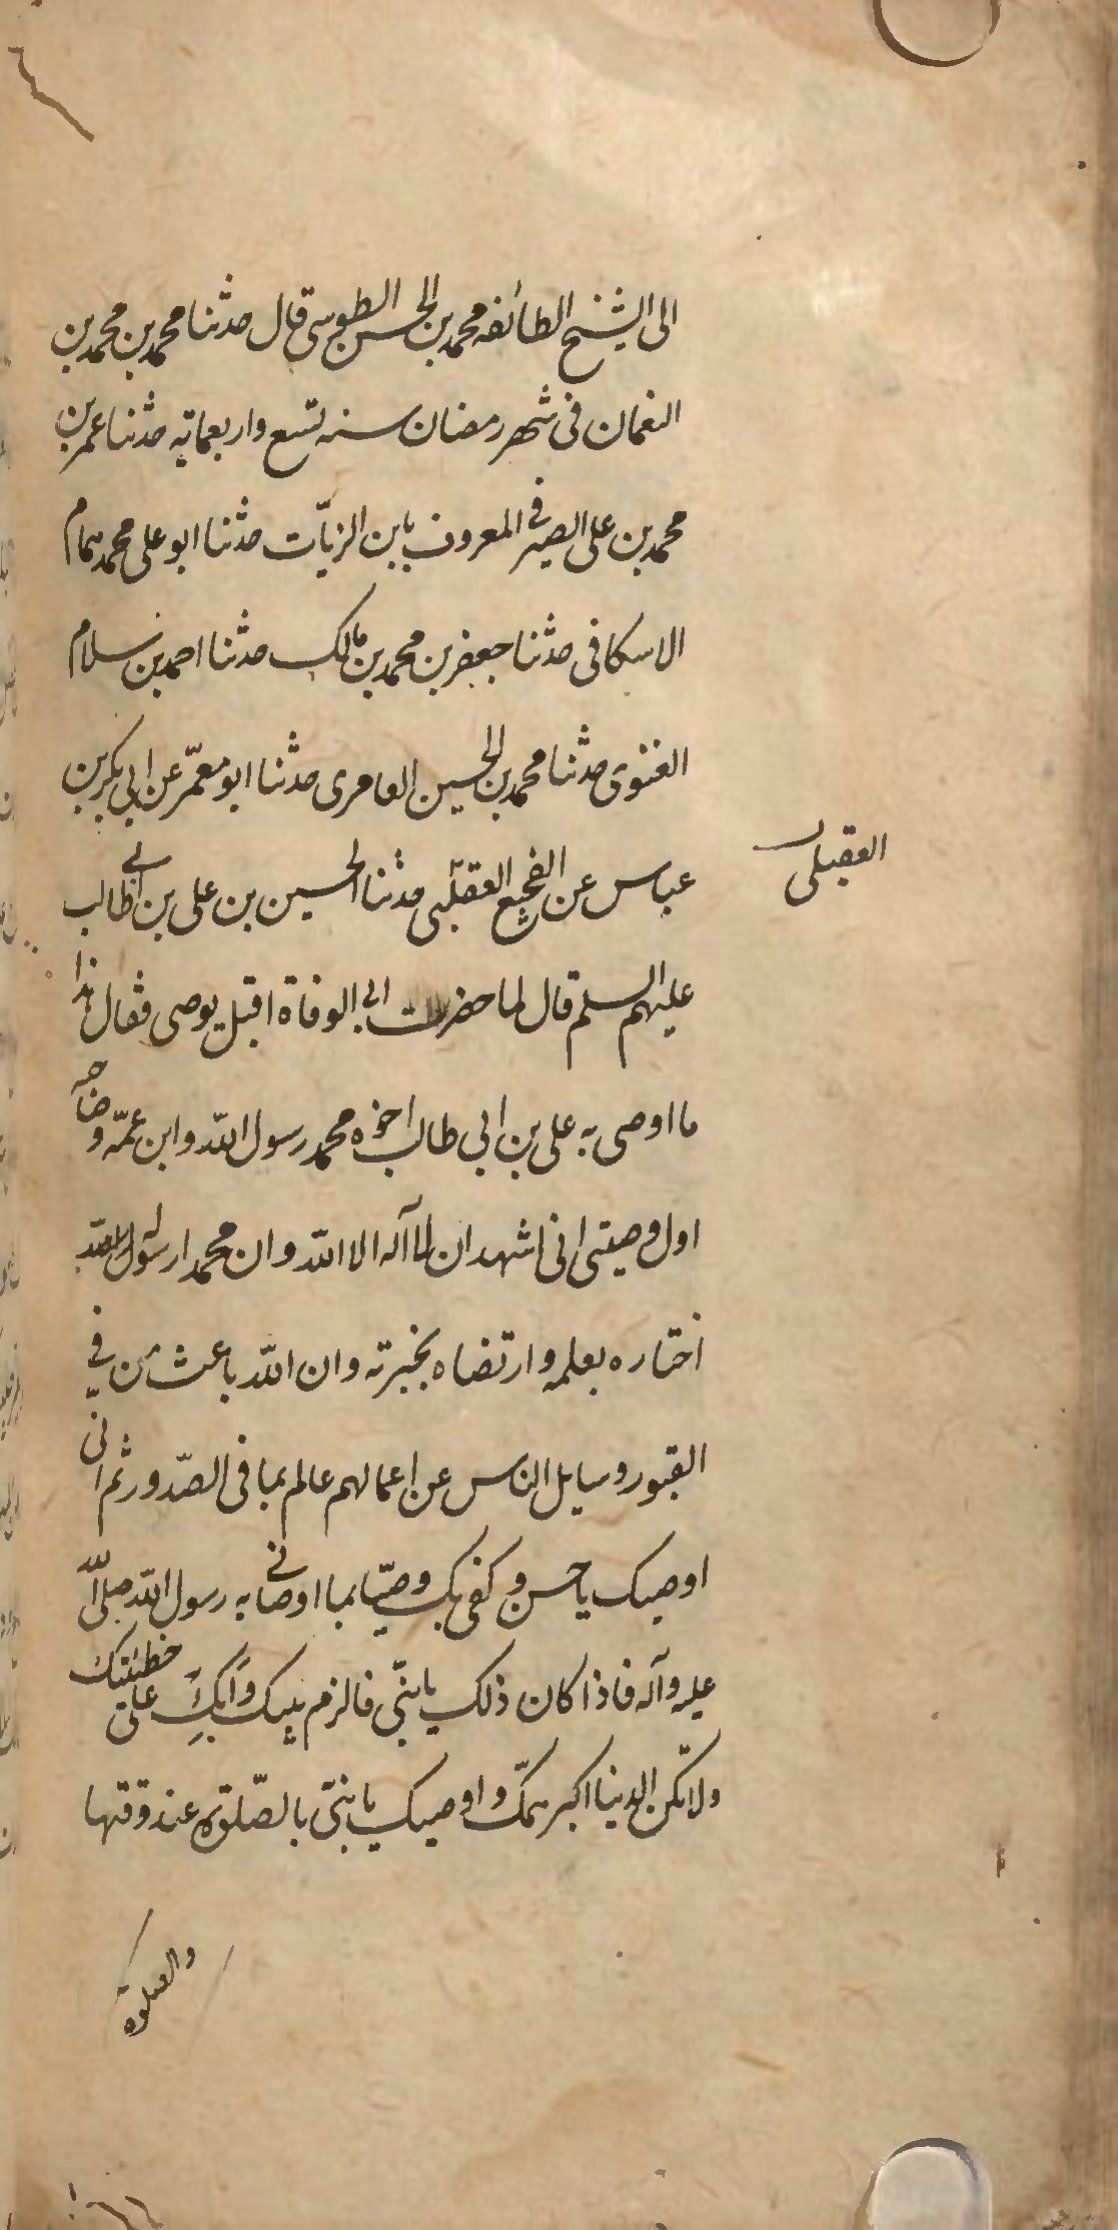 الى الشيخ الطائفه محمد بن الحسن الطوسى قال حدثنا محمد بن محمد بن
النعمان فى شهر رمضان سنه تسع واربعمايه حدثنا عمر بن
محمد بن على الصيرفي المعروف بابن الزيّات حدثنا ابو على محمد همام
الاسكافى حدثنا جعفر بن محمد بن مالك حدثنا احمد بن سلام
الغنوى حدثنا محمد بن الحسين العامرى حدثنا ابو معمّر عن ابى بكر بن
عباس عن الفجيع العقيلى حدثنا الحسين بن على بن ابى طالب
العقيلى
عليهم السلم قال لما حضرت ابي الوفاة اقبل يوصى فقال هذا
ما اوصى به على بن ابى طالب اخوه محمد رسول الله وابن عمّه وصاحبه
اول وصيتى انى اشهد ان لا اله الا الله وان محمدا رسوله
اختاره بعلمه وارتضاه بخبرته وان الله باعث من في
القبور وسايل الناس عن اعمالهم عالم بما فى الصّدور ثم انى
اوصيك يا حسن وكفى بك وصيّا بما اوصانى به رسول الله صلى الله
عليه وآله فاذا كان ذلك يا بنّى فالزم بيتك وابكِ على خطيئتك
ولا تكن الدينا اكبر همّك واوصيك يا بنىّ بالصّلوة عند وقتها
والصلوة